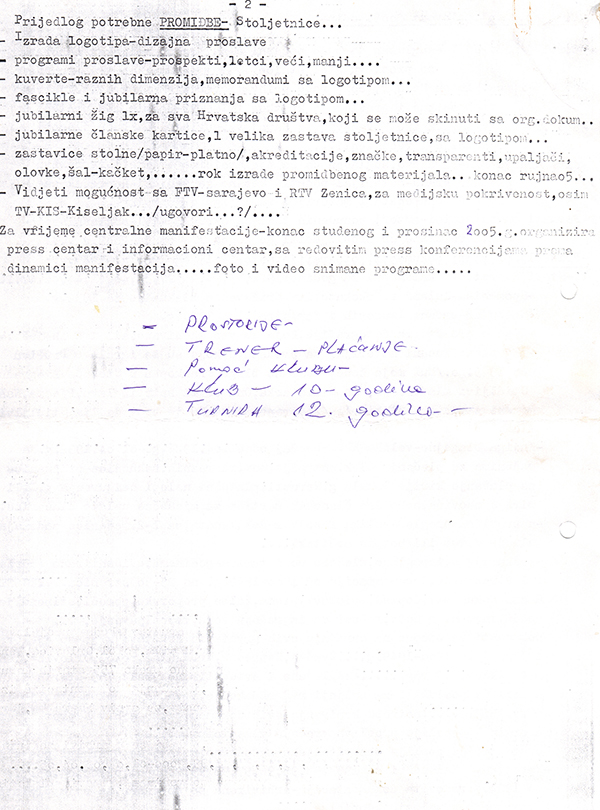 - 2 -
Prijedlog potrebne PROMIDBE- Stoljetnice...
- Izrada logotipa-dizajna proslave
- programi proslave-prospekti,letci,veći,manji....
- kuverte-raznih dimenzija,memorandumi sa logotipom...
- fascikle i jubilarna priznanja sa logotipom...
- jubilarni žig lx,za sva Hrvatska društva,koji se može skinuti sa org.dokum..
- jubilarne članske kartice,l velika zastava stoljetnice,sa logotipom...
- zastavice stolne/papir-platno/,akreditacije,značke,transparenti,upaljači,
olovke,šal-kačket,......rok izrade promidbenog materijala.. konac rujnao5...
- Vidjeti mogućnost sa FTV-sarajevo i RTV Zenica,za medijsku pokrivenost,osim
TV-KIS-Kiseljak.../ugovori...?/....
Za vrijeme centralne manifestacije-konac studenog i prosinac 2oo5.g.organizira
press centar i informacioni centar,sa redovitim press konferencijama prema
dinamici manifestacija.....foto i video snimane programe.....
- PROSTORIJE-
- TRENER - PLAĆANJE.
- Pomoć KLUBU-
- KLUB - 10- godina
- TURNIRA 12. godina -